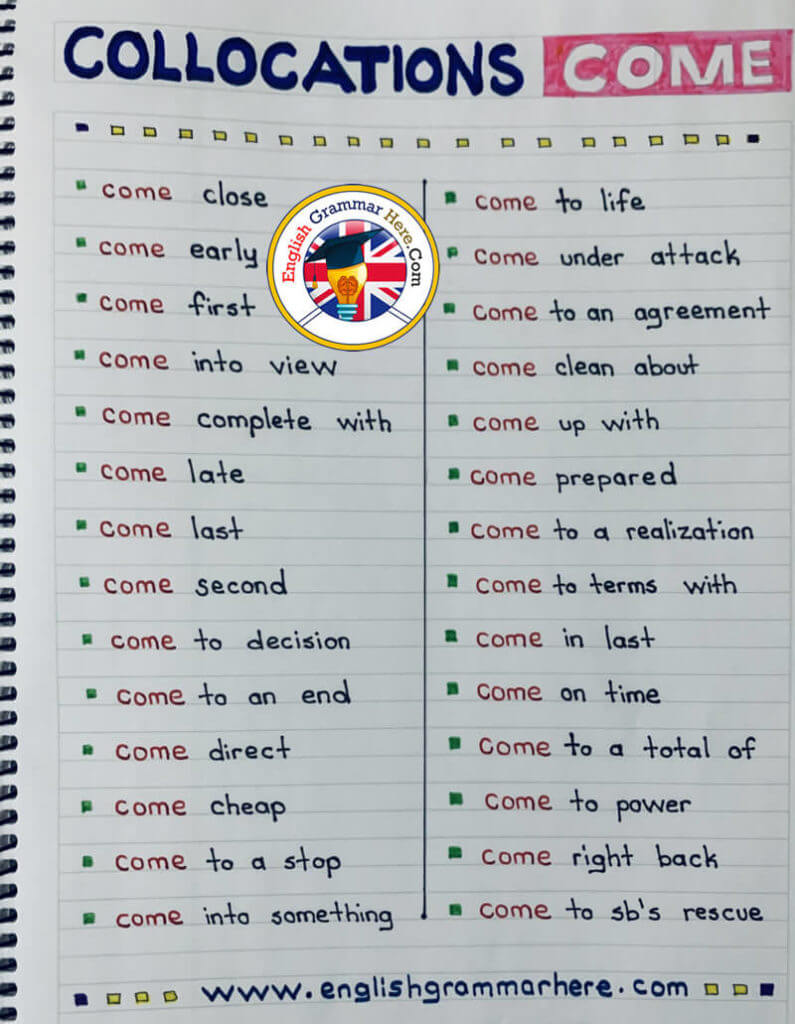 COLLOCATIONS COME
English Grammar Here.Com
come close
come early
come first
come into view
come complete with
come late
come last
come second
come to decision
come to an end
come direct
come cheap
come to a stop
come into something
come to life
come under attack
come to an agreement
come clean about
come up with
come prepared
come to a realization
come to terms with
come in last
come on time
come to a total of
come to power
come right back
come to sb's rescue
www.englishgrammarhere.com